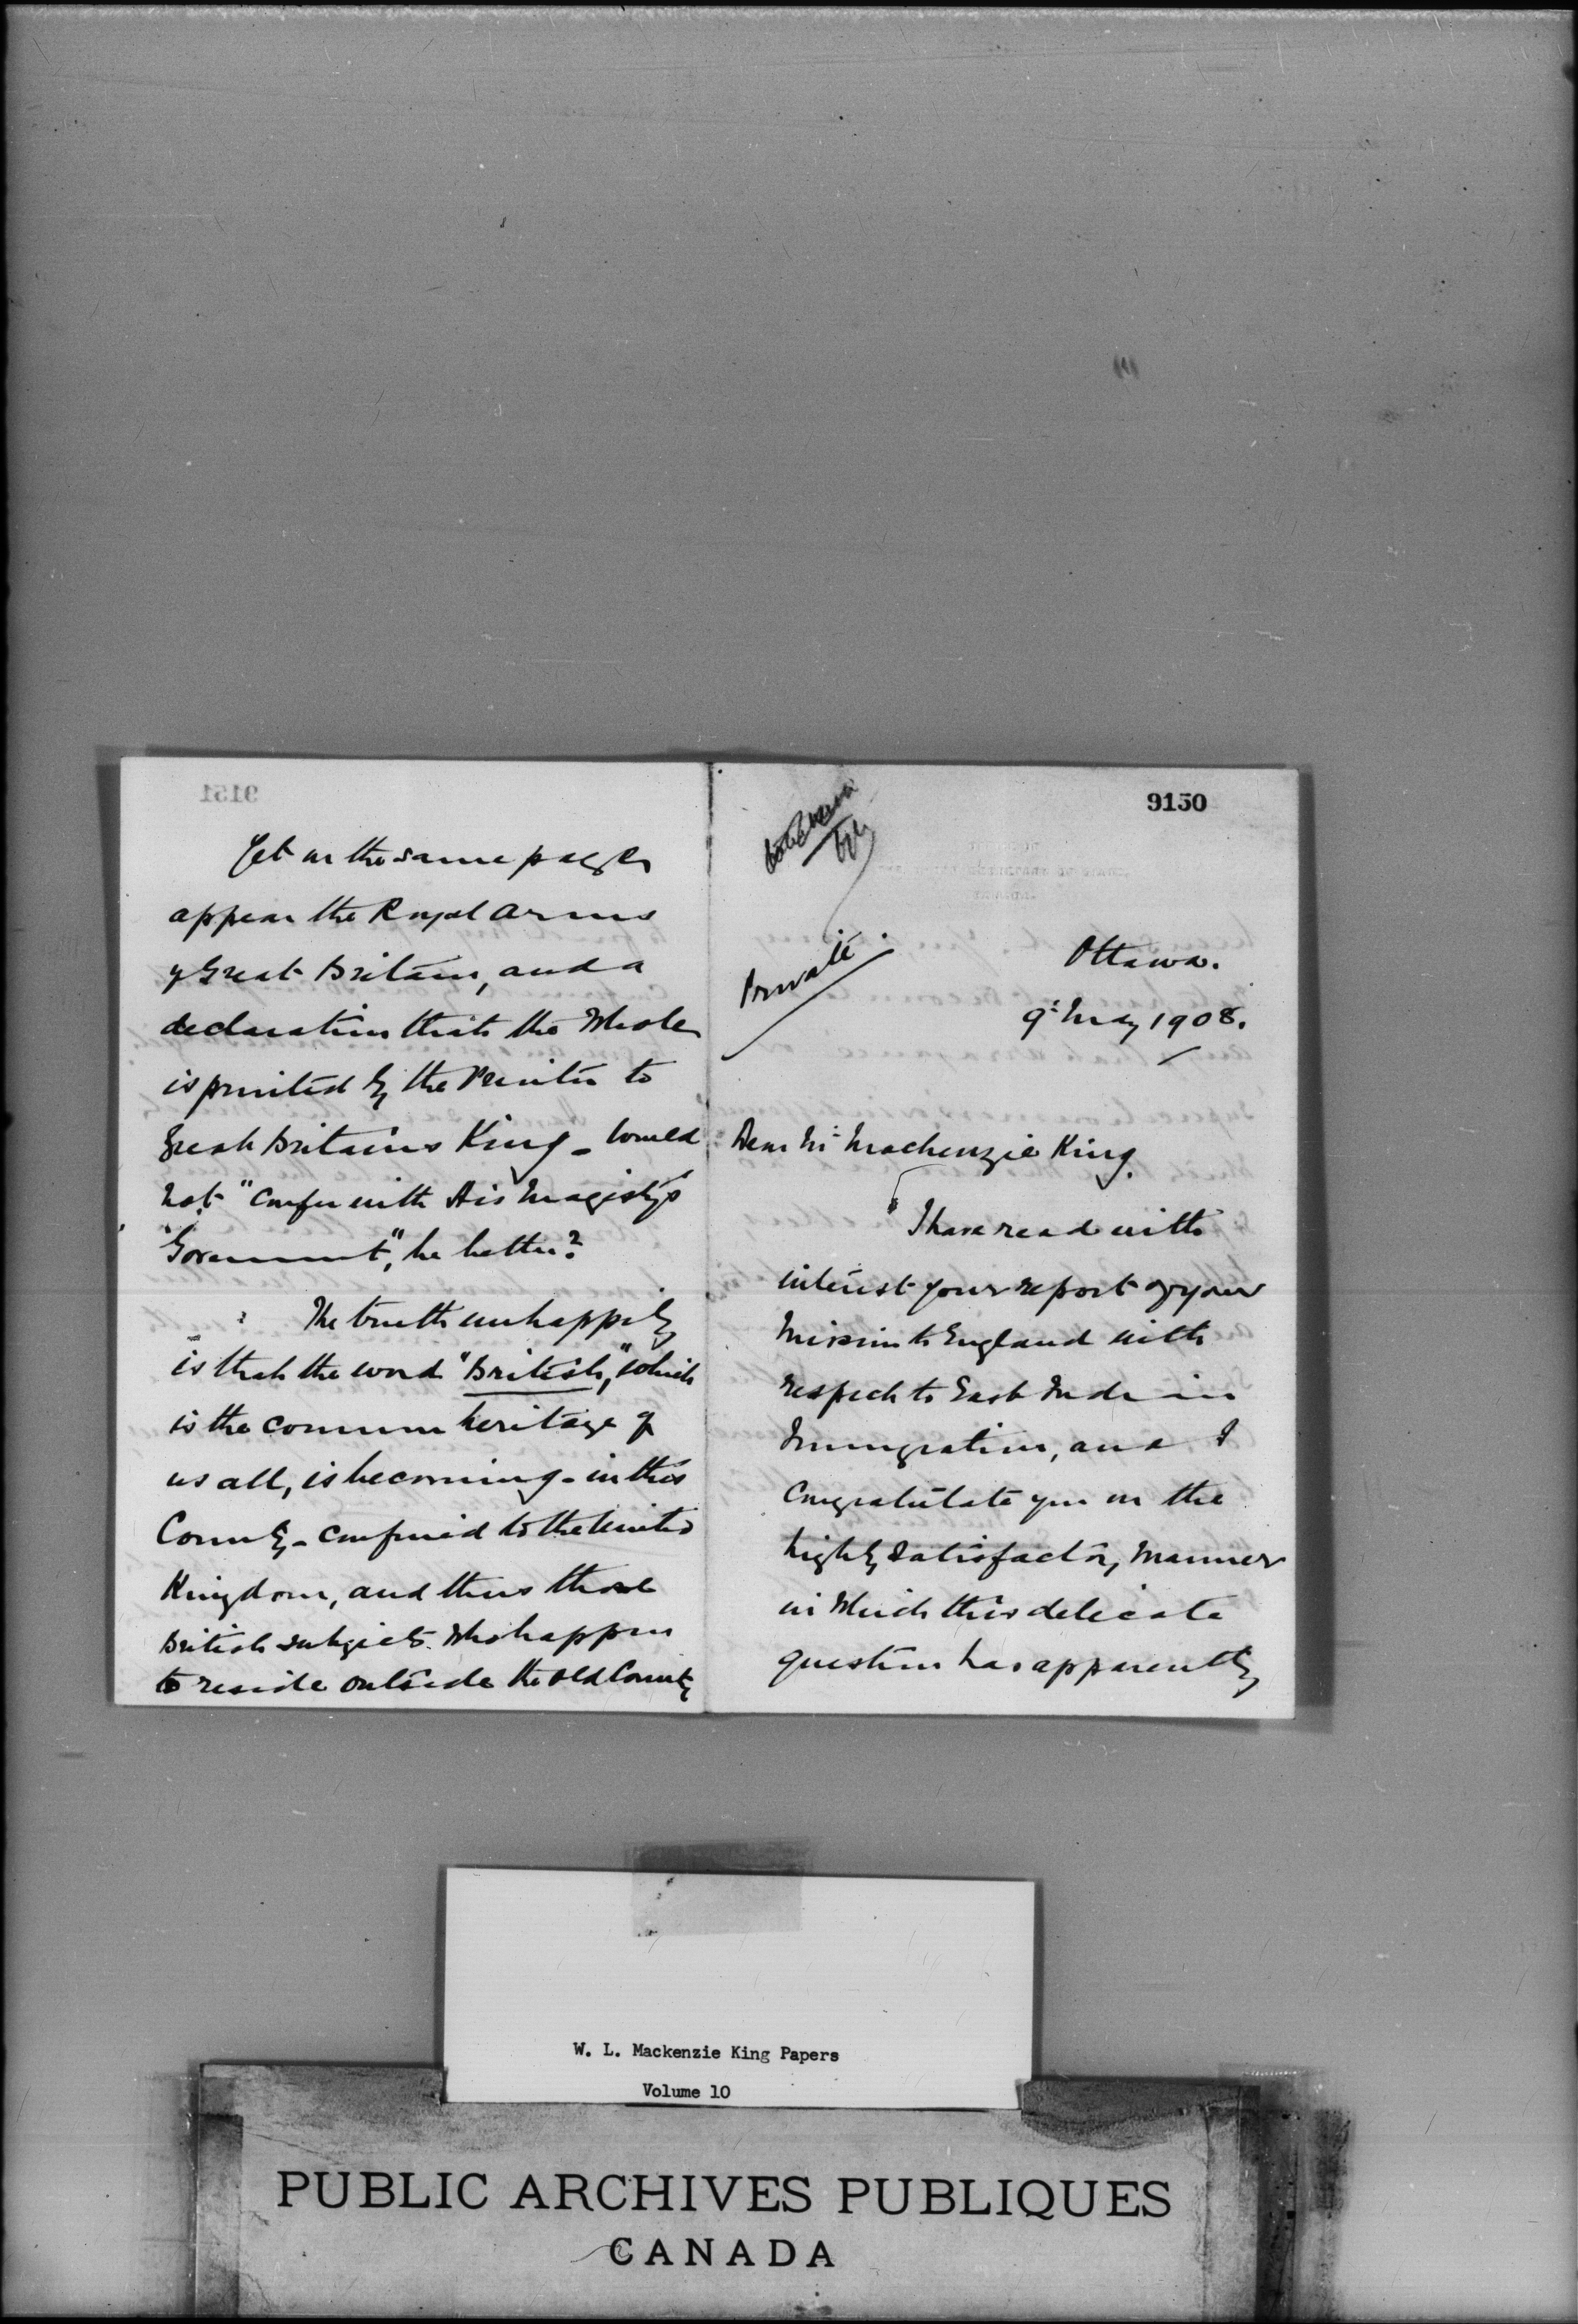 9151
Yet on the same pages
appear the Royal Arms
of Great Britain, and a
declaration that the whole
is printed by the Printer to
Great Britain's King - would
not "confer with His Majesty's
Government", be better?
The truth unhappily
is that the word "British," which
is the common heritage of
us all, is becoming - in this
Country - confined to the United
Kingdom, and thus those
British subjects who happen
to reside outside the old Country
9150
Private.
Ottawa.
9: May 1908.
Dear Mr Mackenzie King
I have read with
interest your report of your
Mission to England with
respect to East Indian
Immigration, and I
congratulate you on the
highly satisfactory manner
in which this delicate
question has apparently
W. L. Mackenzie King Papers
Volume 10
PUBLIC ARCHIVES PUBLIQUES
CANADA